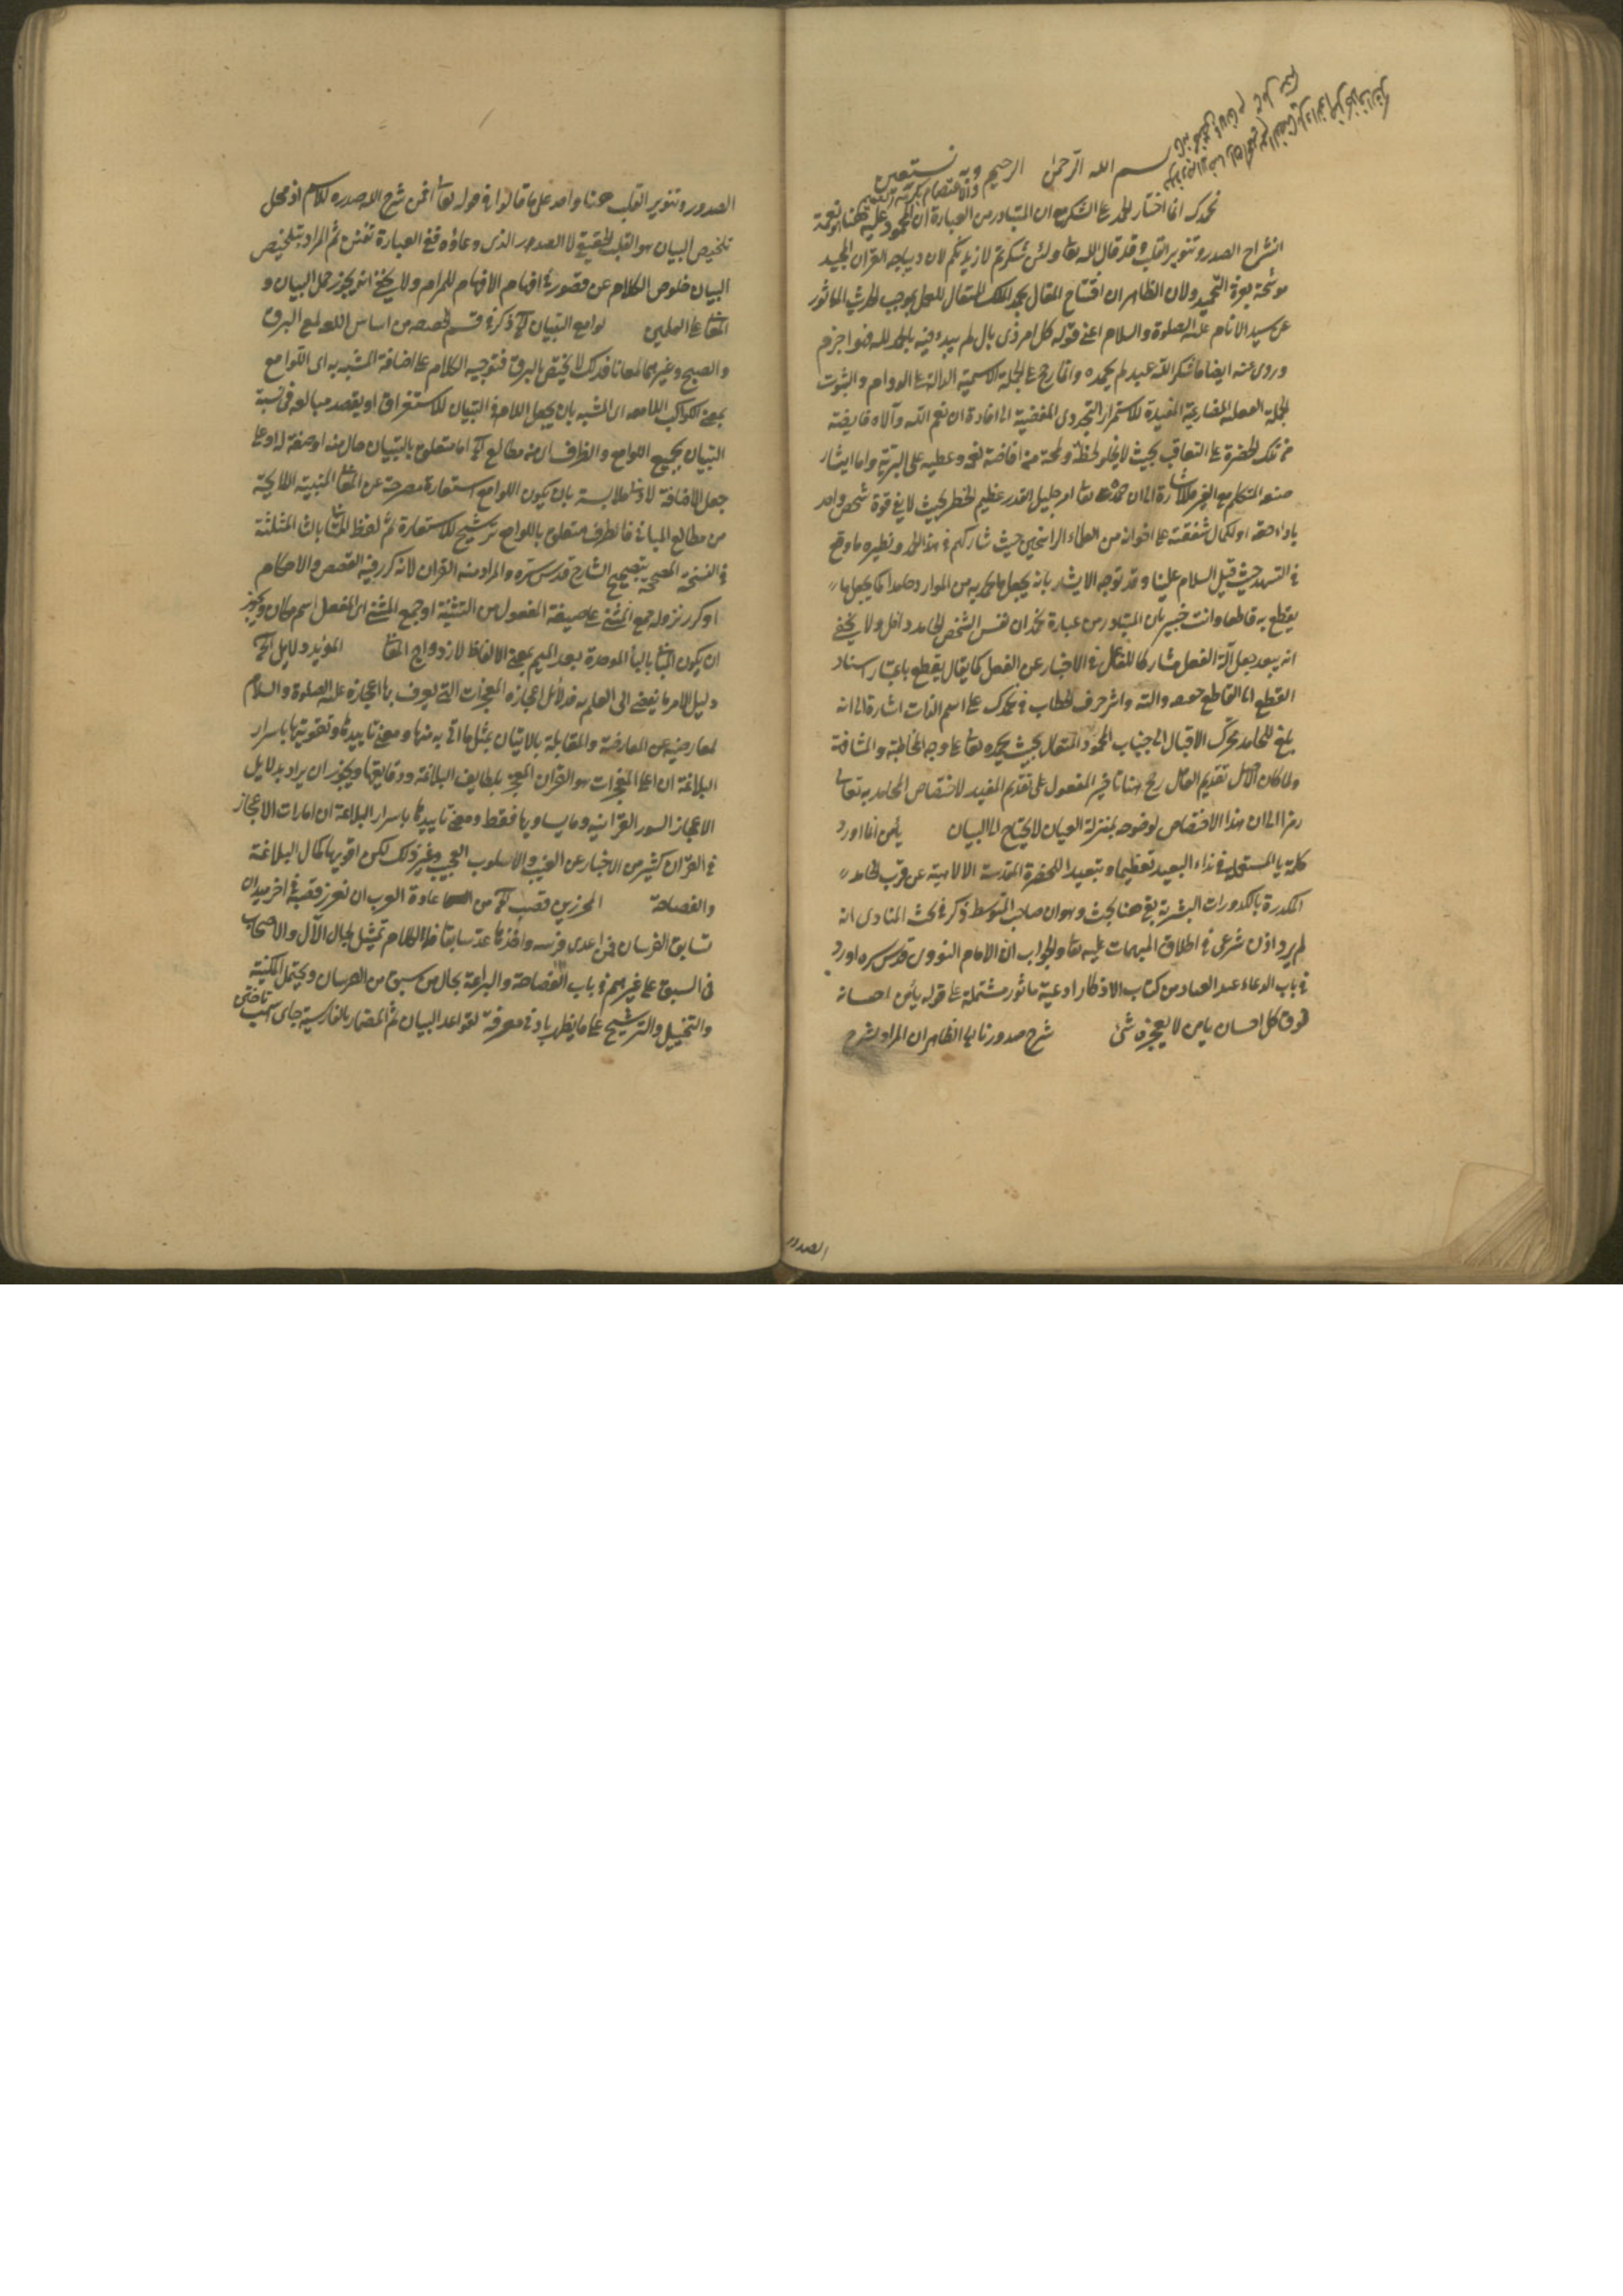 بسم الله الرحمن الرحيم وبه نستعين
نحمدك انما اختار الحمد على الشكر مع ان المتبادر من العبارة ان المحمود عليه ههنا نعمة
انشراح الصدر وتنوير القلب وقد قال الله تعا ولئن شكرتم لازيدنكم لان ديباجه القران المجيد
موشحة بغرة التحميد ولان الظاهر ان افتتاح المقال بحمد الملك المتعال للعمل بموجب الحديث الماثور
عن سيد الانام عليه الصلوة والسلام اعنى قوله كل امر ذى بال لم يبدء فيه بالحمد لله فهو اجزم
وروى عنه ايضا ما شكر الله عبد لم يحمده وانما رجح على الجملة الاسمية الدالة على الدوام والثبوت
الجملة الفعلية المضارعية المفيدة للاستمرار التجددى المفضية الى افادة ان نعم الله وآلاه فايضة
من تلك الحضرة على التعاقب بحيث لا يخلو لحظة ولمحة من افاضة نعمه وعطيه على البرية واما ايثار
صيغة المتكلم مع الغير فللاشارة الى ان حمده تعا امر جليل القدر عظيم الخطر بحيث لا يفى قوة شخص واحد
باداء حقه او لكمال شفقته على اخوانه من العلماء الراسخين حيث شاركهم فى هذا الحمد ونظيره ما وقع
فى التشهد حيث قيل السلام علينا وقد توجه الايثار بانه يجعل ما يحمد به من الموارد حامدا كما يجعل ما
يقطع به قاطعا وانت خبير بان المتبادر من عبارة نحمد ان نفس الشخص الحامد داخل ولا يخفى
انه يبعد جعل آلة الفعل مشاركا للفاعل فى الاخبار عن الفعل كما يقال يقطع باعتبار اسناد
القطع الى القاطع حقيقة والته واثر حرف الخطاب فى نحمدك على اسم الذات اشارة الى انه
بلغ للحامد محرك الاقبال الى جناب المحمود المتعال بحيث يحمده تعا على وجه المخاطبة والمشافهة
ولما كان الاصل تقديم العامل رجح هنا تاخير المفعول على تقديم المفيد لاختصاص المحامد به تعالى
رمزا الى ان هذا الاختصاص لوضوحه بمنزلة العيان لا يحتاج الى البيان يا من انما اورد
كلمة يا المستعملة فى نداء البعيد تعظيما وتبعيدا للحضرة المقدسة الالهية عن قرب الحامد
المكدرة بالكدورات البشرية بقى هنا بحث وهو ان صاحب المتوسط ذكر فى بحث المنادى انه
لم يرد اذن شرعى فى اطلاق المبهمات عليه تعا والجواب ان الامام النووى قدس سره اورد
فى باب الدعاء عند العباد من كتاب الاذكار ادعية ماثور مشتملة على قوله يا من احسانه
فوق كل احسان يا من لا يعجزه شئ شرح صدورنا الى الظاهر ان المراد بشرح
الصدور
الصدور وتنوير القلب هنا واحد على ما قالوا فى قوله تعا افمن شرح الله صدره للاسلام اذ محل
تلخيص البيان هو القلب الحقيقى لا الصدر الذى وعاؤه ففى العبارة تفنن ثم المراد بتلخيص
البيان خلوص الكلام عن قصور فى افهام الافهام للمرام ولا يخفى انه يجوز حمل البيان و
المعانى على العلمين لوامع التبيان الخ ذكر فى قسم الحقيقة من اساس اللغة لمع البرق
والصبح وغيرهما لمعانا فذلك لا يختص بالبرق فتوجيه الكلام على اضافة المشبه به اى اللوامع
بمعنى الكواكب اللامعة الى المشبه بان يجعل اللام فى التبيان للاستغراق او يقصد مبالغة فى نسبة
التبيان بجميع اللوامع والظرف اى من مطالع الخ اما متعلق بالتبيان حال منه او صفة له او على
جعل الاضافة لادنى ملابسة بان يكون اللوامع استعارة مصرحة عن المعانى المنبية اللايحة
من مطالع المبانى فالظرف متعلق باللوامع ترشيح للاستعارة ثم لفظ المثانى بالثاء المثلثة
فى النسخة المصححة بتصحيح الشارح قدس سره والمراد منه القران لانه كرر فيه القصص والاحكام
او كرر نزوله جمع المثنى على صيغة المفعول من التثنية او جمع المثنى اى المفعل اسم مكان ويجوز
ان يكون المبانى بالباء الموحدة بعد الميم بمعنى الالفاظ لازدواج المعانى المؤيد دلايل الخ
دليل الامر ما يفضى الى العلم به فدلائل اعجازه المعجزات التى يعرف بها اعجازه عليه الصلوة والسلام
لمعارضيه عن المعارضة والمقابلة بالاتيان بمثل ما اتى به منها ومعنى تاييدها وتقويتها باسرار
البلاغة ان اعلى المعجزات هو القران المعجز بلطايف البلاغة ودقايقها ويجوز ان يراد بدلايل
الاعجاز السور القرانية وما يساويها فقط ومعنى تاييدها باسرار البلاغة ان امارات الاعجاز
فى القران كثير من الاخبار عن الغيب والاسلوب العجيب وغير ذلك لكن اقويها كمال البلاغة
والفصاحة المحرزين قصب الخ من عادة العرب ان تغرز قصبة فى اخر ميدان
تسابق الفرسان فمن اعدى فرسه واخذها عد سابقا ففى الكلام تمثيل لحال الآل والاصحاب
فى السبق على غيرهم فى باب الفصاحة والبراعة بحال من سبق من الفرسان ويحتمل المكنية
والتخييل والترشيح على ما يظهر بادنى معرفة لقواعد البيان ثم المضمار بالفارسية جاى اسب تاختن